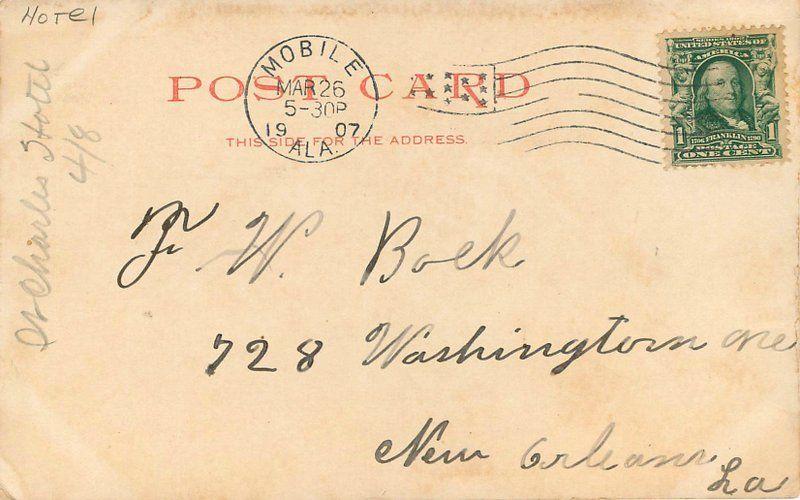 HOTEL
St Charles Hotel
4/8
MOBILE
MAR 26
5-30P
19 07
ALA.
POST CARD
THIS SIDE FOR THE ADDRESS.
SERIES 1902
UNITED STATES OF
AMERICA
1706 FRANKLIN 1790
1 POSTAGE 1
ONE CENT
F W. Bock
728 Washington ave
New Orleans
La